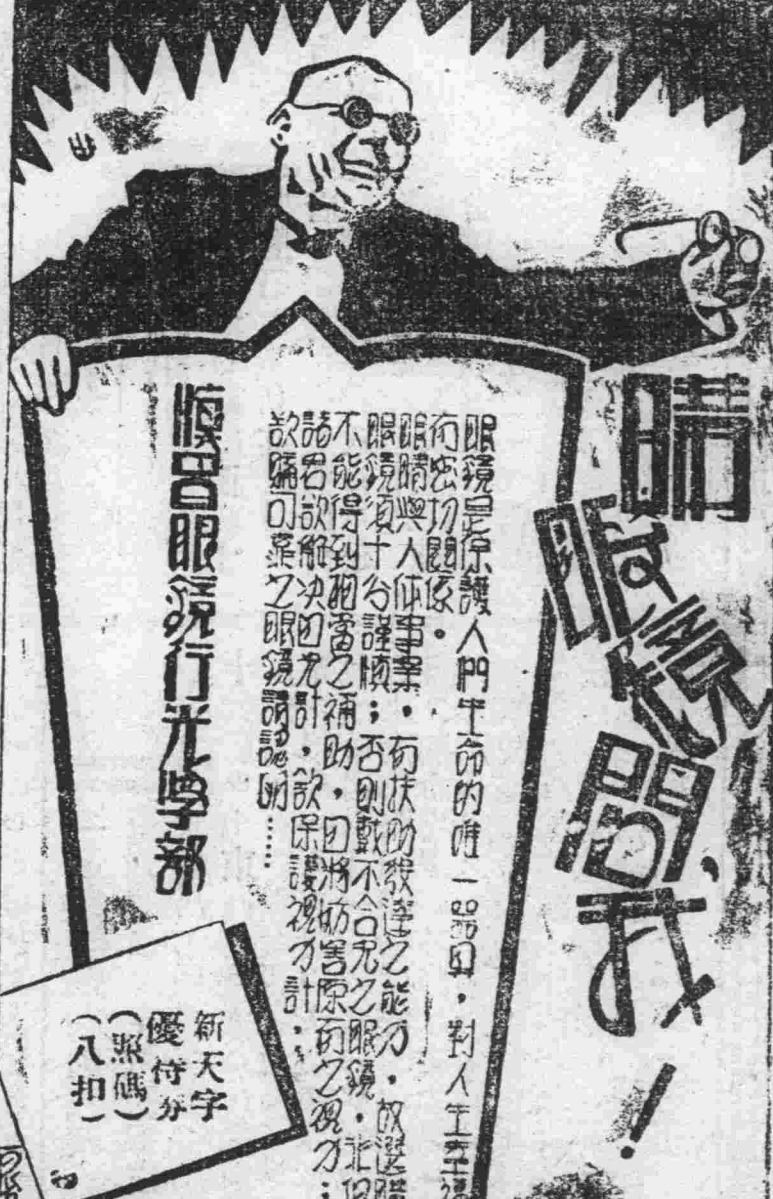 購眼鏡問我！
眼鏡是保護人們生命的唯一器具，對人生幸福
有密切關係。
眼睛與人体事業，有扶助發達之能力，故選購
眼鏡須十分謹慎；否則戴不合光之眼鏡，非但
不能得到相當之補助，且將妨害原有之視力；
諸君欲解決目光計，欲保護視力計，
欲購可靠之眼鏡請認明……
昌眼鏡行光學部
新天字
優待券
（照碼）
（八扣）